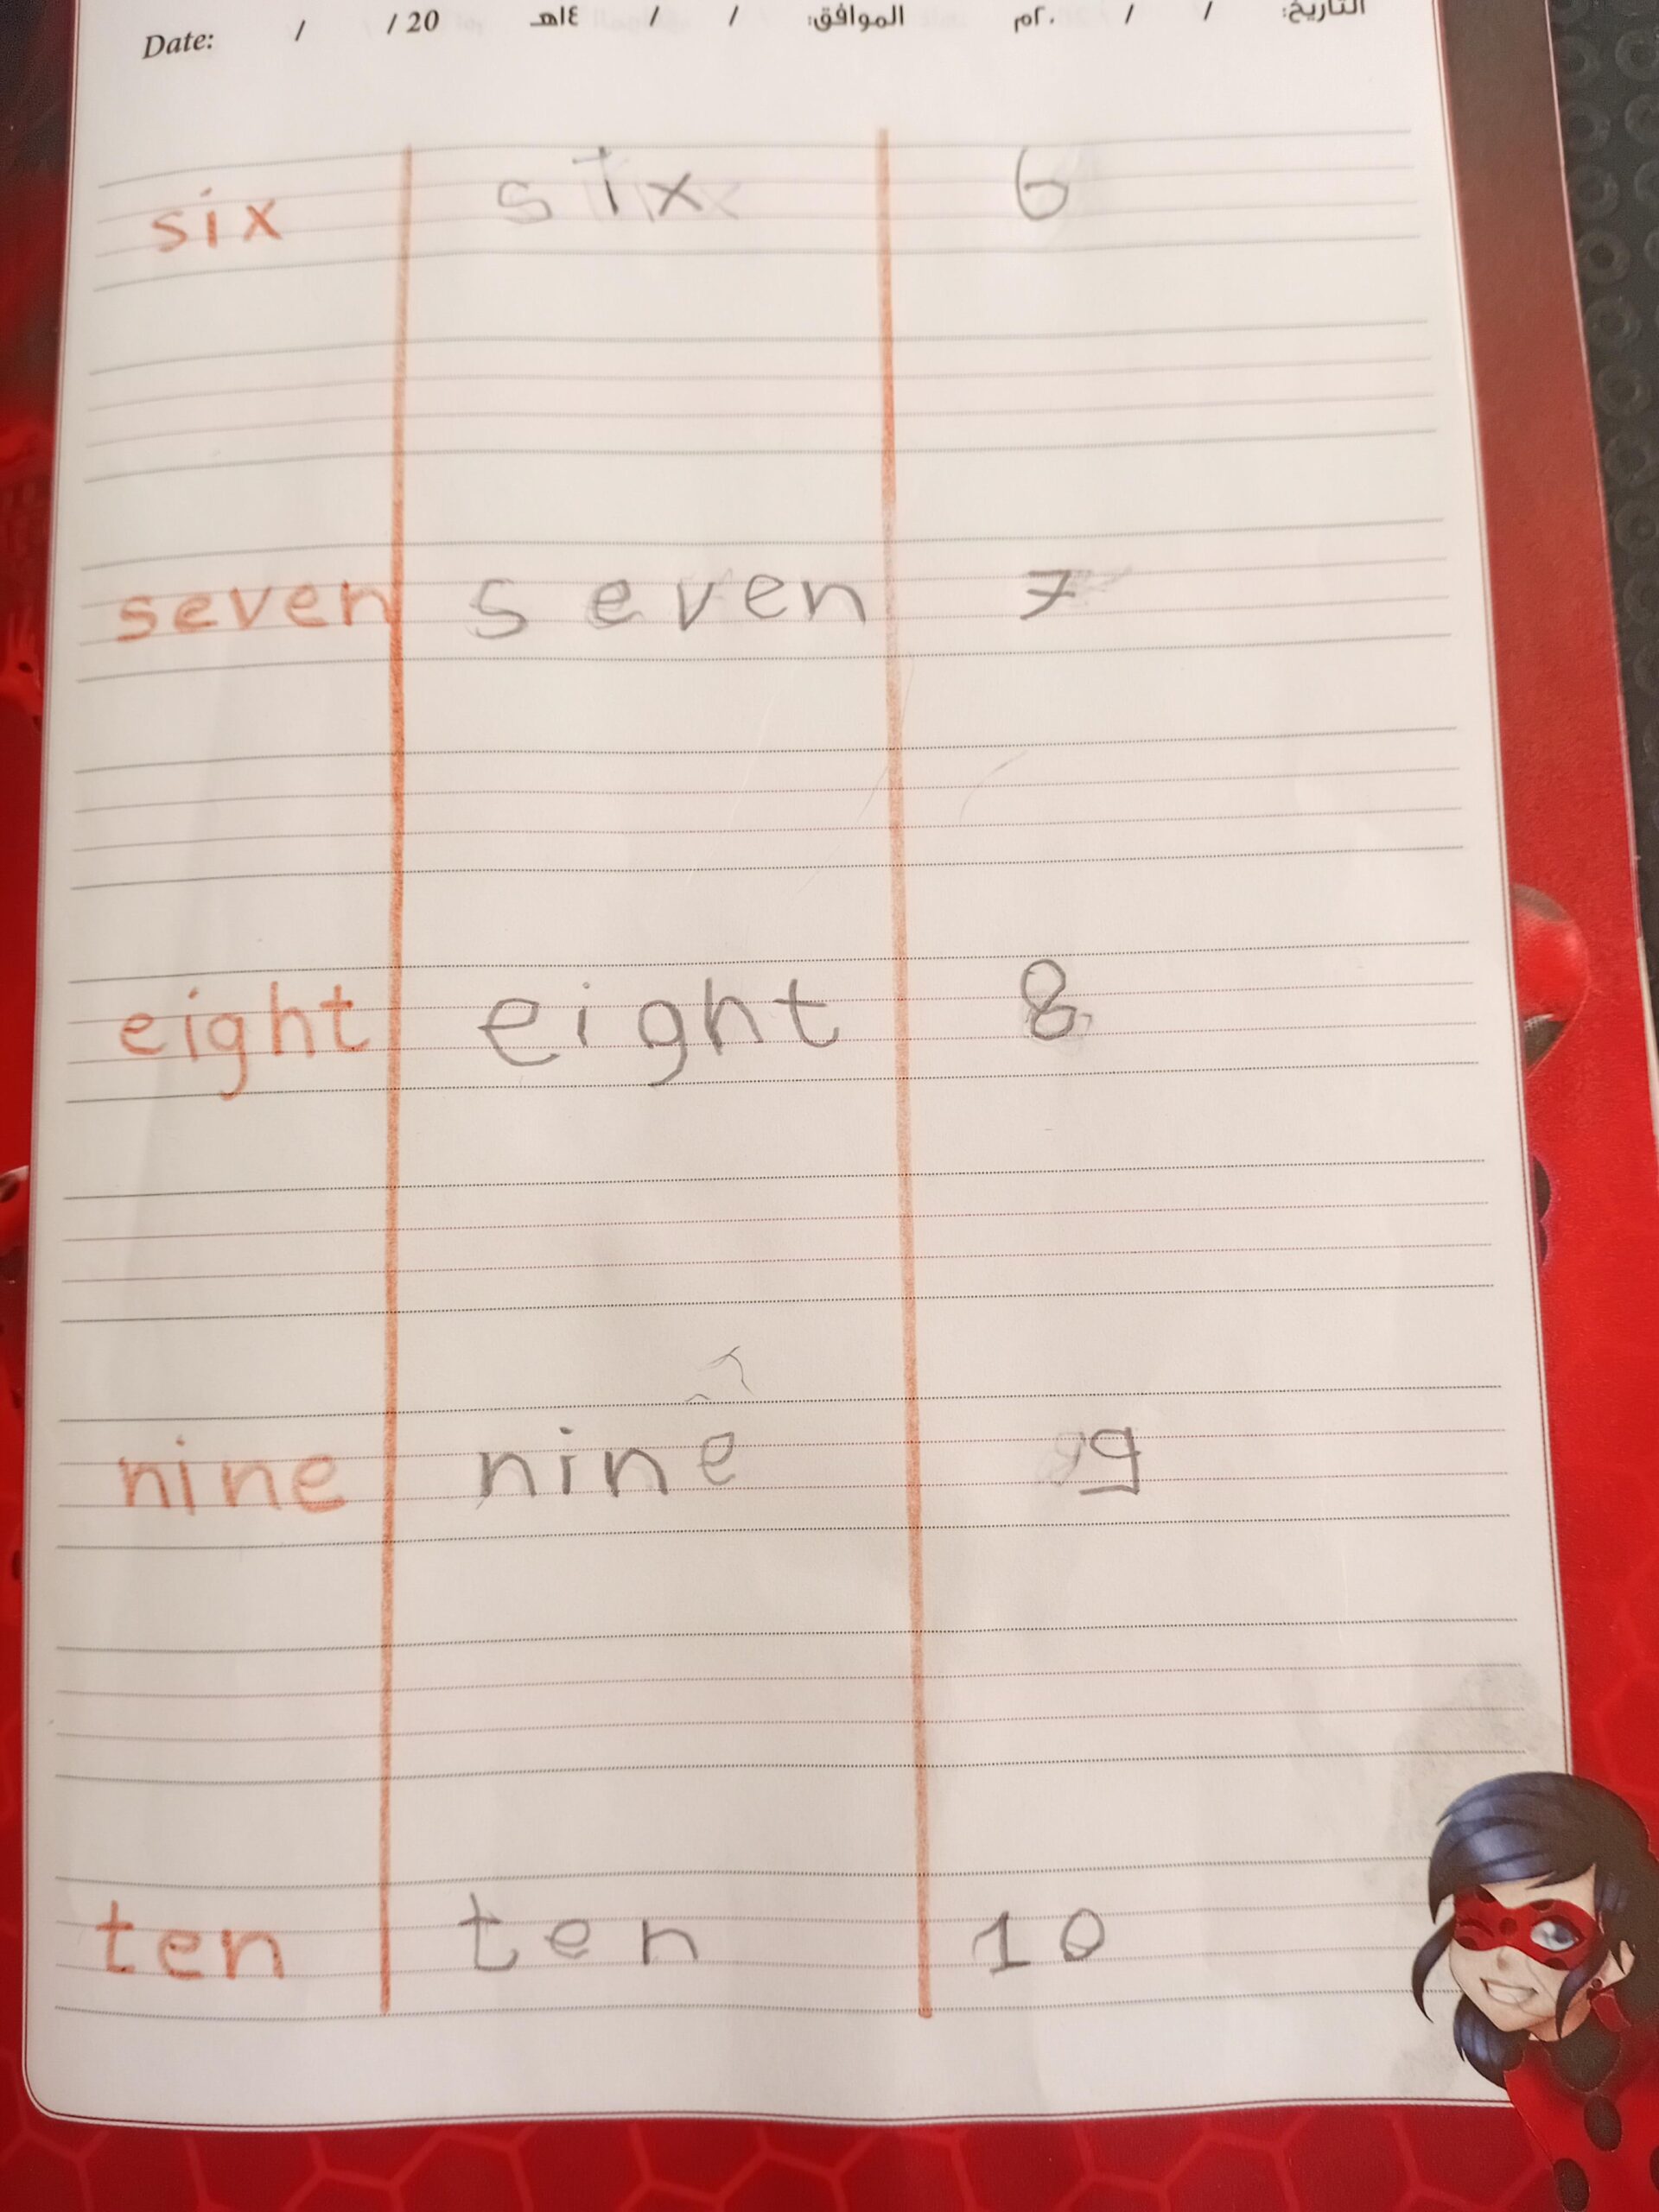 Date: / / 20 التاريخ: / / ٢٠م الموافق: / / ١٤هـ
six six 6
seven seven 7
eight eight 8
nine nine 9
ten ten 10